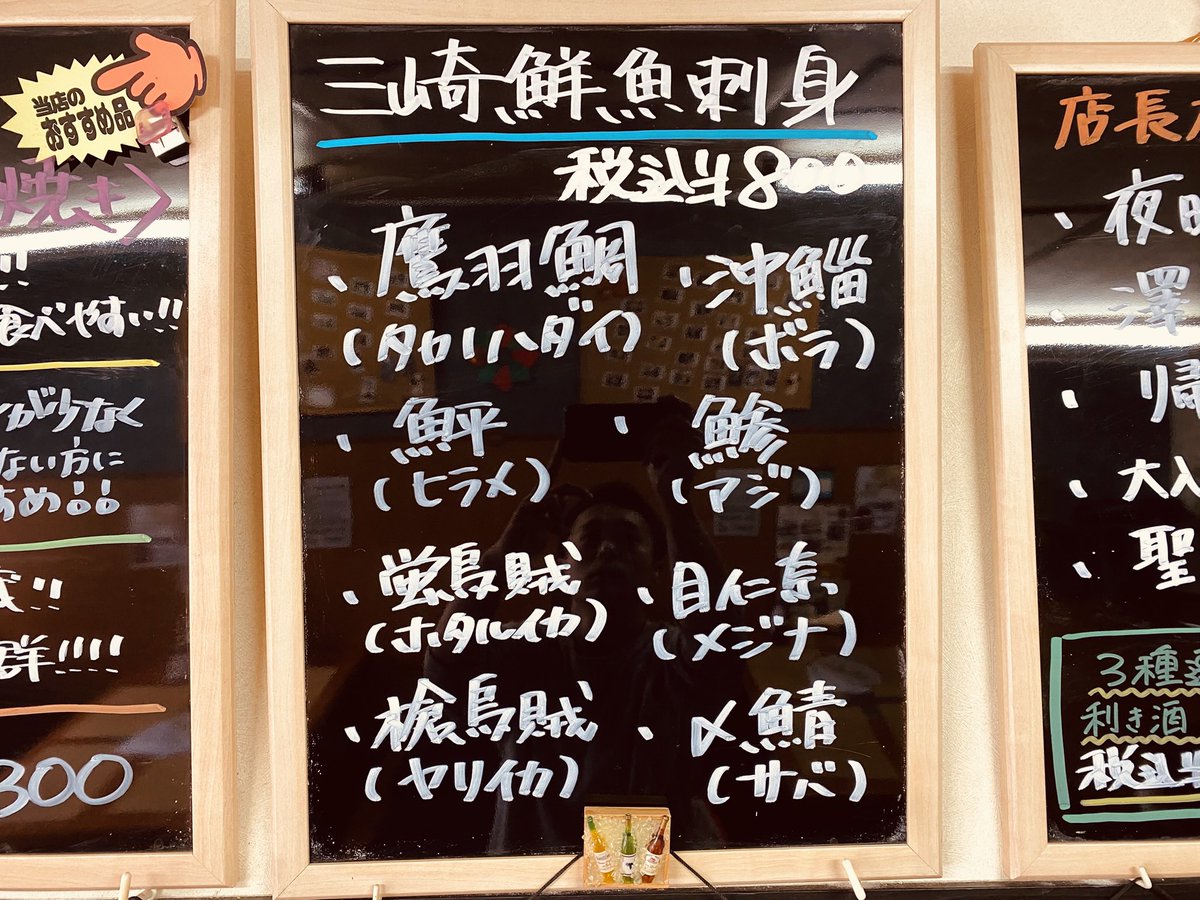 当店の
おすすめ品
焼き〉
!!
食べやすい!!
なく
ない方に
!!
群!!!!
800
三崎鮮魚刺身
税込み800
・鷹羽鯛
(タカノハダイ)
・沖鯔
(ボラ)
・鮃
(ヒラメ)
・鯵
(アジ)
・蛍烏賊
(ホタルイカ)
・目仁奈
(メジナ)
・槍烏賊
(ヤリイカ)
・〆鯖
(サバ)
店長
・夜明
・澤
・帰
・大入
・聖
3種選
利き酒
税込み